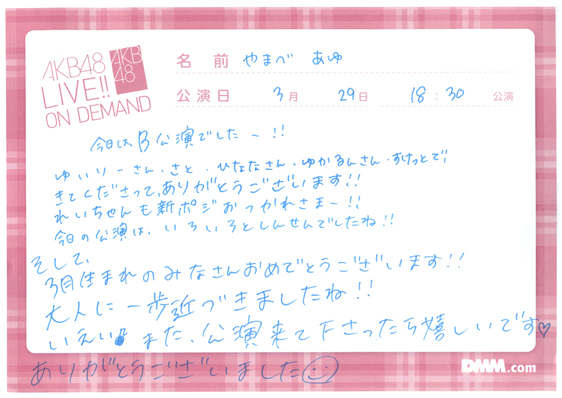 AKB48
LIVE!!
ON DEMAND
AKB
48
名前 やまべ あゆ
公演日 3月 29日 18:30 公演
今日はB公演でしたー!!
ゆいりーさん・さと・ひななさん・ゆかるんさん・すけっとで、
きてくださって、ありがとうございます!!
れいちゃんも新ポジおつかれさまー!!
今日の公演は、いろいろとしんせんでしたね!!
そして、
3月生まれのみなさんおめでとうございます!!
大人に一歩近づきましたね!!
いえい♪ また、公演来て下さったら嬉しいです♡
ありがとうございました☺
DMM.com